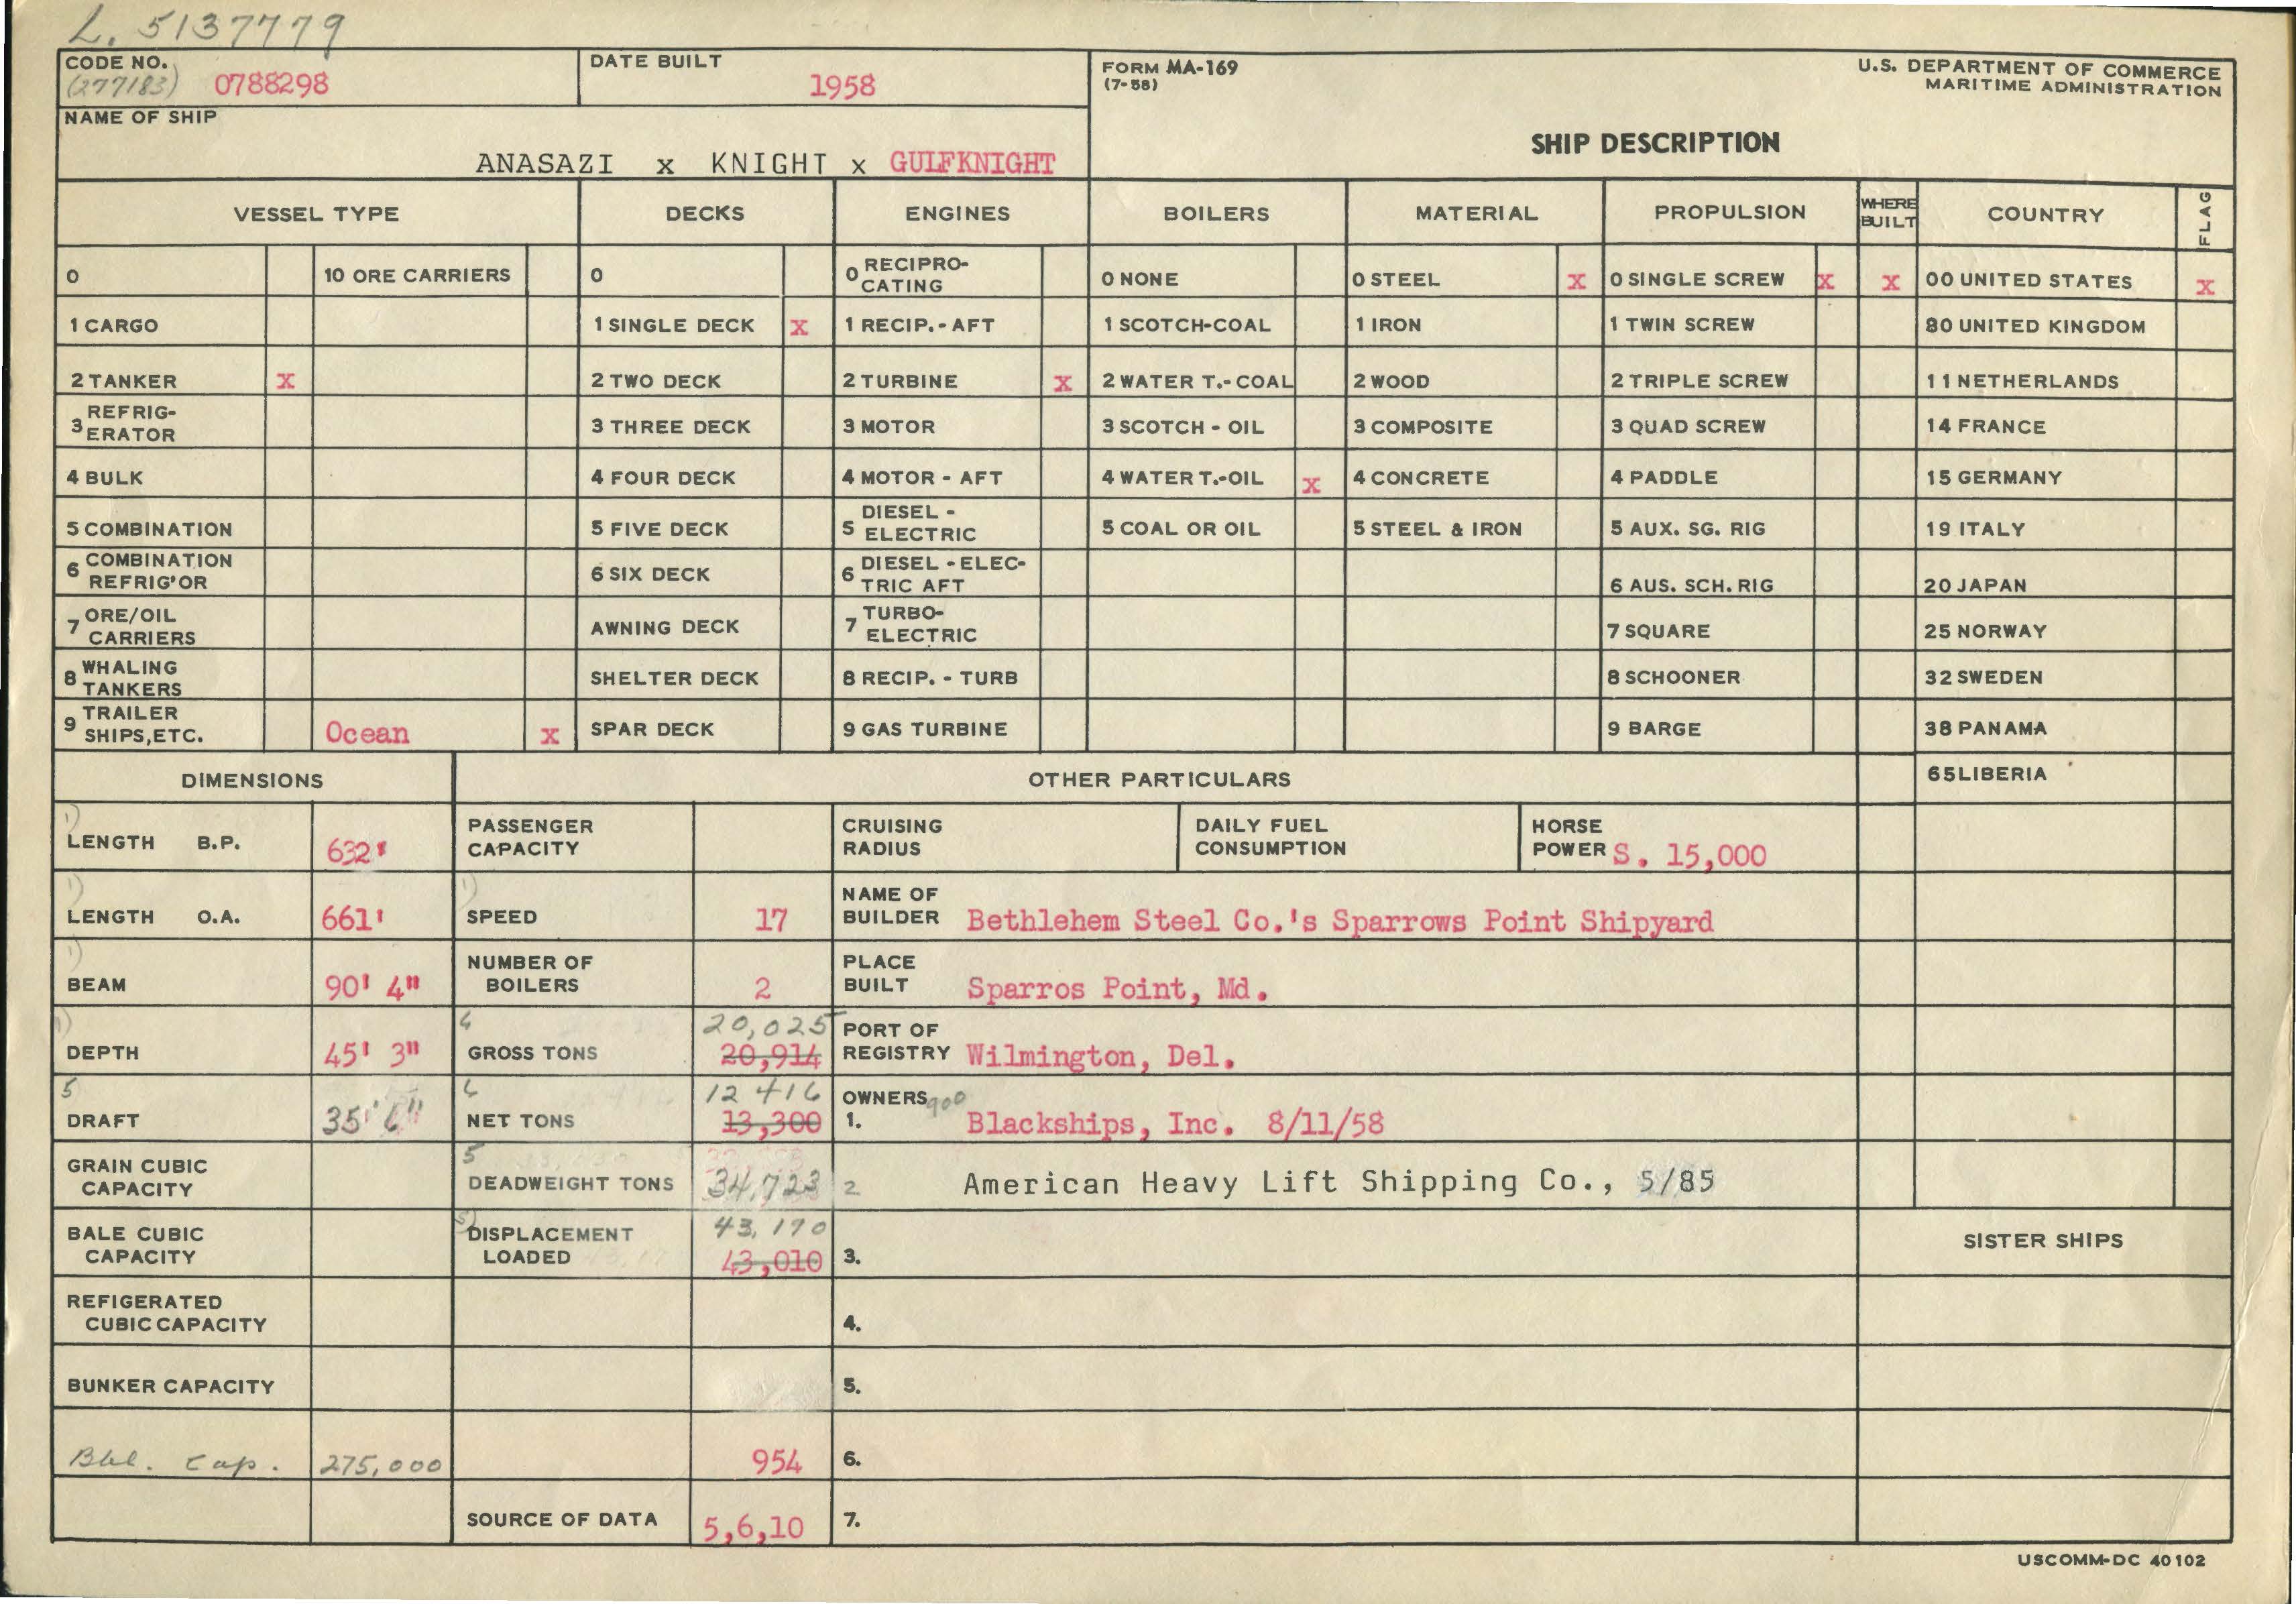 L. 5137779
CODE NO.
(277183) 0788298
DATE BUILT
1958
FORM MA-169
(7-58)
U.S. DEPARTMENT OF COMMERCE
MARITIME ADMINISTRATION
NAME OF SHIP
ANASAZI x KNIGHT x GULFKNIGHT
SHIP DESCRIPTION
VESSEL TYPE DECKS ENGINES BOILERS MATERIAL PROPULSION WHERE BUILT COUNTRY FLAG
0 10 ORE CARRIERS 0 0 RECIPRO-CATING 0 NONE 0 STEEL x 0 SINGLE SCREW x x 00 UNITED STATES x
1 CARGO 1 SINGLE DECK x 1 RECIP.-AFT 1 SCOTCH-COAL 1 IRON 1 TWIN SCREW 80 UNITED KINGDOM
2 TANKER x 2 TWO DECK 2 TURBINE x 2 WATER T.-COAL 2 WOOD 2 TRIPLE SCREW 11 NETHERLANDS
3 REFRIG-ERATOR 3 THREE DECK 3 MOTOR 3 SCOTCH - OIL 3 COMPOSITE 3 QUAD SCREW 14 FRANCE
4 BULK 4 FOUR DECK 4 MOTOR - AFT 4 WATER T.-OIL x 4 CONCRETE 4 PADDLE 15 GERMANY
5 COMBINATION 5 FIVE DECK 5 DIESEL - ELECTRIC 5 COAL OR OIL 5 STEEL & IRON 5 AUX. SG. RIG 19 ITALY
6 COMBINATION REFRIG'OR 6 SIX DECK 6 DIESEL - ELEC-TRIC AFT 6 AUS. SCH. RIG 20 JAPAN
7 ORE/OIL CARRIERS AWNING DECK 7 TURBO-ELECTRIC 7 SQUARE 25 NORWAY
8 WHALING TANKERS SHELTER DECK 8 RECIP. - TURB 8 SCHOONER 32 SWEDEN
9 TRAILER SHIPS,ETC. Ocean x SPAR DECK 9 GAS TURBINE 9 BARGE 38 PANAMA
DIMENSIONS OTHER PARTICULARS 65 LIBERIA
1) LENGTH B.P. 632' PASSENGER CAPACITY CRUISING RADIUS DAILY FUEL CONSUMPTION HORSE POWER S. 15,000
1) LENGTH O.A. 661' 1) SPEED 17 NAME OF BUILDER Bethlehem Steel Co.'s Sparrows Point Shipyard
1) BEAM 90' 4" NUMBER OF BOILERS 2 PLACE BUILT Sparros Point, Md.
1) DEPTH 45' 3" 6 GROSS TONS 20,025 20,914 PORT OF REGISTRY Wilmington, Del.
5 DRAFT 35' 6" 6 NET TONS 12 416 13,300 OWNERS 900 1. Blackships, Inc. 8/11/58
GRAIN CUBIC CAPACITY 5 DEADWEIGHT TONS 34,723 2 American Heavy Lift Shipping Co., 5/85
BALE CUBIC CAPACITY 5) DISPLACEMENT LOADED 43,170 43,010 3. SISTER SHIPS
REFIGERATED CUBIC CAPACITY 4.
BUNKER CAPACITY 5.
Bbl. Cap. 275,000 954 6.
SOURCE OF DATA 5,6,10 7.
USCOMM-DC 40102